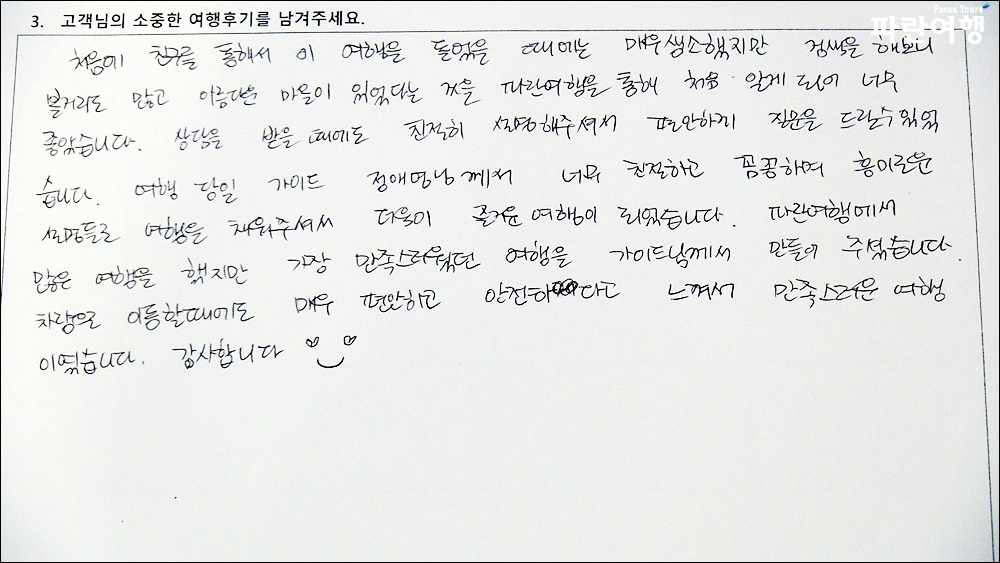 3. 고객님의 소중한 여행후기를 남겨주세요.
Paran Tours
파란여행
처음에 친구를 통해서 이 여행을 들었을 때에는 매우생소했지만 검색을 해보니
볼거리도 많고 아름다운 마을이 있었다는 것을 파란여행을 통해 처음 알게 되어 너무
좋았습니다. 상담을 받을 때에도 친절히 설명해주셔서 편안하게 질문을 드릴수있었
습니다. 여행 당일 가이드 정애영님께서 너무 친절하고 꼼꼼하며 흥미로운
설명들로 여행을 채워주셔서 더욱이 즐거운 여행이 되었습니다. 파란여행에서
많은 여행을 했지만 가장 만족스러웠던 여행을 가이드님께서 만들어 주셨습니다.
차량으로 이동할때에도 매우 편안하고 안전하다고 느껴서 만족스러운 여행
이였습니다. 감사합니다